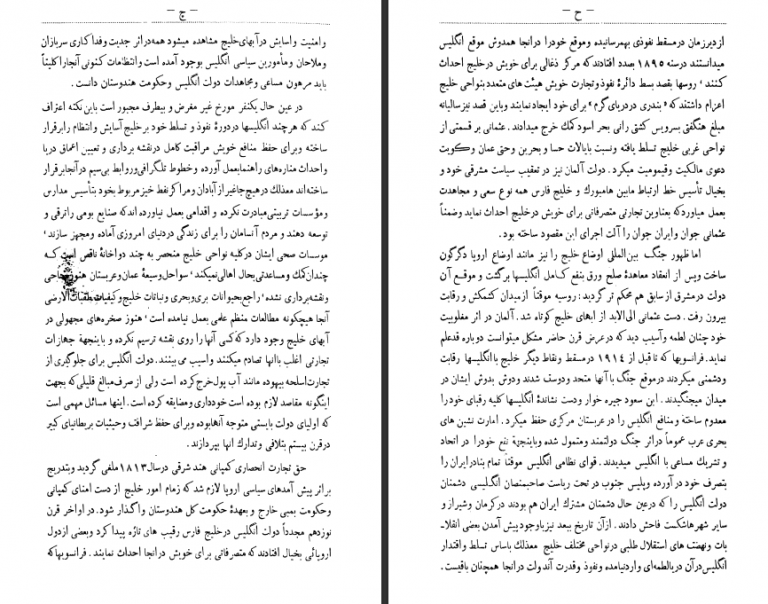 – ج –
وامنیت وآسایش درآبهای خلیج مشاهده میشود همه در اثر جدیت وفداکاری سربازان
وملاحان ومأمورین سیاسی انگلیس بوجود آمده است وانتظامات کنونی آنجا را کلیتاً
باید مرهون مساعی ومجاهدات دولت انگلیس وحکومت هندوستان دانست .
در عین حال یکنفر مورخ غیر مغرض و بیطرف مجبور است باین نکته اعتراف
کند که هر چند انگلیسها در دورهٔ نفوذ و تسلط خود بر خلیج آسایش وانتظام را برقرار
ساخته وبرای حفظ منافع خویش مراقبت کامل در نقشه برداری و تعیین اعماق دریا
واحداث مناره‌های راهنما بعمل آورده وخطوط تلگرافی ورابط بی‌سیم در آنجا برقرار
ساخته‌اند معذلک درهیچ جا غیر از آبادان ومراکز نفط خیز مربوط بخود بتأسیس مدارس
ومؤسسات تربیتی مبادرت نکرده و اقدامی بعمل نیاورده اند که صنایع بومی را ترقی و
توسعه دهند و مردم آنسامان را برای زندگی در دنیای امروزی آماده ومجهز سازند ؛
موسسات صحی ایشان در کلیه نواحی خلیج منحصر به چند دواخانهٔ ناقص است که
چندان کمک و مساعدتی بحال اهالی نمیکند؛ سواحل وسیعهٔ عمان وعربستان هنوز
ونقشه برداری نشده ؛ راجع بحیوانات بری وبحری و نباتات خلیج وکیفیات طبقات الارضی
آنجا هیچگونه مطالعات منظم علمی بعمل نیامده است ؛ هنوز صخره‌های مجهولی در
آبهای خلیج وجود دارد که کسی آنها را روی نقشه ترسیم نکرده و باینجهة جهازات
تجارتی اغلب با آنها تصادم میکنند و آسیب می بینند . دولت انگلیس برای جلوگیری از
تجارت اسلحه بیهوده مانند آب پول خرج کرده است ولی از صرف مبالغ قلیلی که بجهت
اینگونه مقاصد لازم بوده است خودداری ومضایقه کرده است . اینها مسائل مهمی است
که اولیای دولت بایستی متوجه آنها بوده وبرای حفظ شرافت وحیثیات بریطانیای کبیر
در قرن بیستم بتلافی وتدارک آنها بپردازند .
حق تجارت انحصاری کمپانی هند شرقی در سال ۱۸۱۳ ملغی گردید وبتدریج
براثر پیش آمدهای سیاسی اروپا لازم شد که زمام امور خلیج از دست امنای کمپانی
وحکومت بمبی خارج و بعهدهٔ حکومت کل هندوستان واگذار شود . در اواخر قرن
نوزدهم مجدداً دولت انگلیس درخلیج فارس رقیب های تازه پیدا کرد وبعضی از دول
اروپائی بخیال افتادند که متصرفاتی برای خویش در آنجا احداث نمایند . فرانسویها که
– ح –
از دیر زمان در مسقط نفوذی بهمرسانیده وموقع خود را در آنجا همدوش موقع انگلیس
میدانستند درسنه ۱۸۹۵ بصدد افتادند که مرکز ذغالی برای خویش در خلیج احداث
کنند ؛ روسها بقصد بسط دائرهٔ نفوذ وتجارت خویش هیئت های متعدد بنواحی خلیج
اعزام داشتند که « بندری در دریای گرم » برای خود ایجاد نمایند وباین قصد نیز سالیانه
مبلغ هنگفتی بسرویس کشتی رانی بحر اسود کمک خرج میدادند . عثمانی بر قسمتی از
نواحی غربی خلیج تسلط یافته ونسبت بایالات حسا و بحرین وحتی عمان وکویت
دعوی مالکیت وقیمومیت میکرد . دولت آلمان نیز در تعقیب سیاست مشرقی خود و
بخیال تأسیس خط ارتباط مابین هامبورک و خلیج فارس همه نوع سعی و مجاهدت
بعمل میآورد که بعناوین تجارتی متصرفاتی برای خویش در خلیج احداث نماید وضمناً
عثمانی جوان وایران جوان را آلت اجرای این مقصود ساخته بود .
اما ظهور جنگ بین‌المللی اوضاع خلیج را نیز مانند اوضاع اروپا دگرگون
ساخت وپس از انعقاد معاهدهٔ صلح ورق بنفع کامل انگلیسها برگشت و موقع آن
دولت در مشرق از سابق هم محکم تر گردید : روسیه موقتاً از میدان کشمکش و رقابت
بیرون رفت . دست عثمانی الی‌الابد از ابهای خلیج کوتاه شد . آلمان در اثر مغلوبیت
خود چنان لطمه وآسیب دید که درعرض قرن حاضر مشکل میتوانست دوباره قدعلم
نماید. فرانسویها که تا قبل از ۱۹۱۴ در مسقط ونقاط دیگر خلیج با انگلیسها رقابت
ودشمنی میکردند درموقع جنگ با آنها متحد ودوست شدند ودوش بدوش ایشان در
میدان میجنگیدند . ابن سعود جیره خوار ودست نشاندهٔ انگلیسها کلیه رقبای خود را
معدوم ساخته ومنافع انگلیس را در عربستان مرکزی حفظ میکرد . امارت نشین های
بحری عرب عموماً در اثر جنگ دولتمند ومتمول شده وباینجهة نفع خودرا در اتحاد
و تشریک مساعی با انگلیس میدیدند . قوای نظامی انگلیس موقتاً تمام بنادر ایران را
بتصرف خود در آورده وپلیس جنوب در تحت ریاست صاحبمنصبان انگلیسی دشمنان
دولت انگلیس را که درعین حال دشمنان مشترک ایران هم بودند درکرمان وشیراز و
سایر شهرها شکست فاحش دادند . از آن تاریخ ببعد نیز باوجود پیش آمدن بعضی انقلا
بات ونهضت های استقلال طلبی در نواحی مختلف خلیج معذلک باساس تسلط واقتدار
انگلیس در آن دریا لطمه‌ای وارد نیامده ونفوذ وقدرت آندولت در آنجا همچنان باقیست .